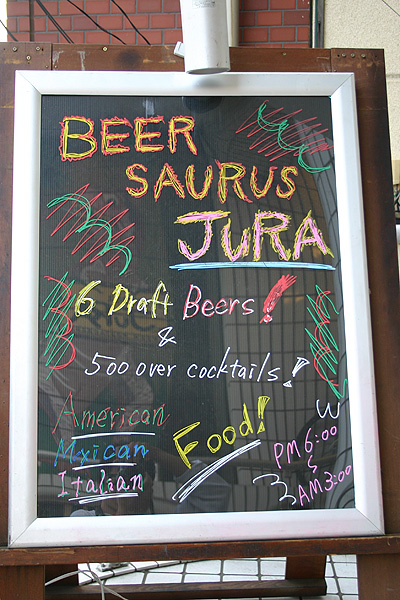 BEER
SAURUS
JURA
6 Draft Beers!
&
500 over cocktails!
American
Mxican
Italian
Food!
PM 6:00
~
AM 3:00